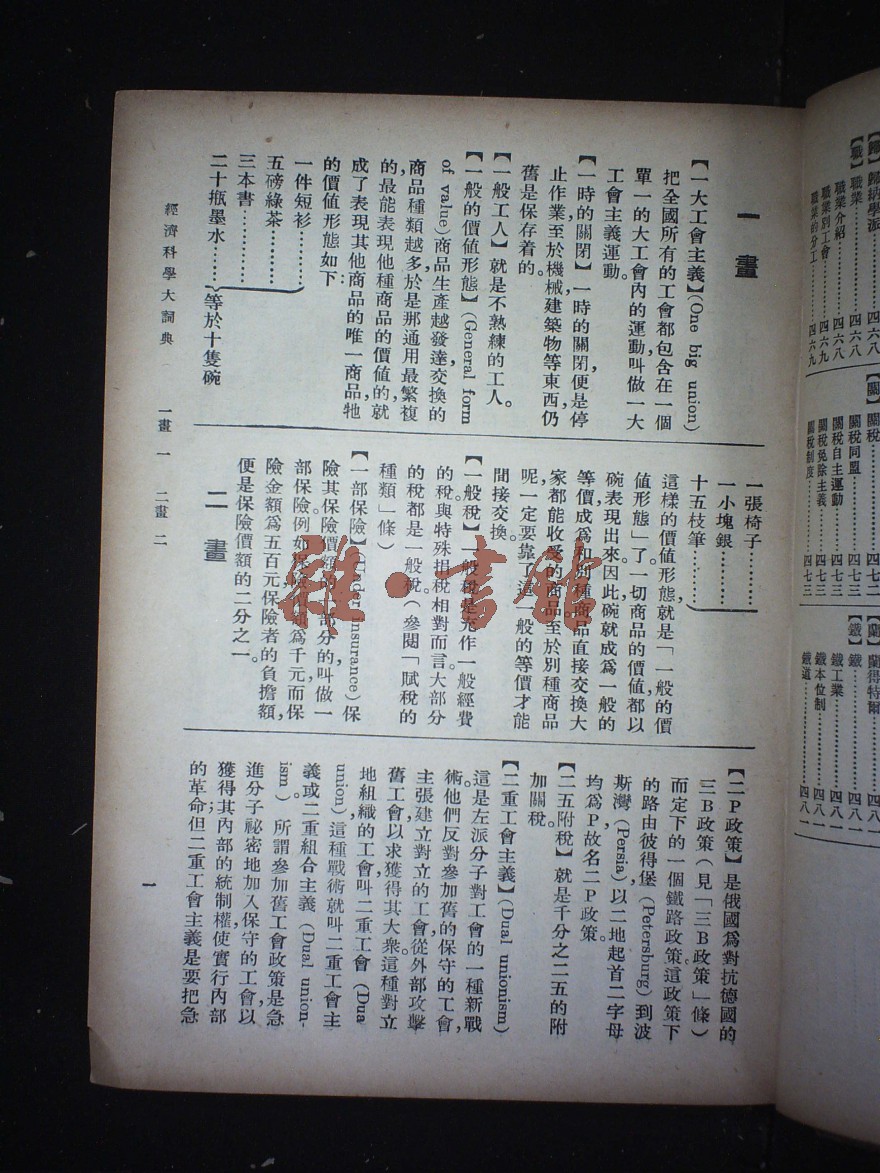 一畫
【一大工會主義】(One big union)
把全國所有的工會都包含在一個
單一的大工會內的運動叫做一大
工會主義運動。
【一時的關閉】一時的關閉便是停
止作業至於機械建築物等東西仍
舊是保存着的。
【一般工人】就是不熟練的工人。
【一般的價值形態】(General form
of value)商品生產越發達交換的
商品種類越多於是那通用最繁複
的最能表現他種商品的價值的就
成了表現其他商品的唯一商品牠
的價值形態如下:
一件短衫…………
五磅綠茶…………
三本書…………
二十瓶墨水……等於十隻碗
一張椅子…………
一小塊銀…………
十五枝筆…………
這樣的價值形態就是「一般的價
值形態」了一切商品的價值都以
碗表現出來因此碗就成爲一般的
等價,成爲和別種商品直接交換大
家都能收受的商品。至於別種商品
呢一定要靠了這一般的等價才能
間接交換。
【一般稅】一般稅是充作一般經費
的稅。與特殊捐稅相對而言。大部分
的稅都是一般稅。(參閱「賦稅的
種類」條)
【一部保險】(Under insurance)保
險其保險價額的一部分的叫做一
部保險。例如保險價額爲千元而保
險金額爲五百元保險者的負擔額,
便是保險價額的二分之一。
二畫
【二P政策】是俄國爲對抗德國的
三B政策(見「三B政策」條)
而定下的一個鐵路政策這政策下
的路由彼得堡(Petersburg)到波
斯灣,(Persia)以二地起首二字母
均爲P故名二P政策。
【二五附稅】就是千分之二五的附
加關稅。
【二重工會主義】(Dual unionism)
這是左派分子對工會的一種新戰
術。他們反對參加舊的保守的工會,
主張建立對立的工會從外部攻擊
舊工會以求獲得其大衆。這種對立
地組織的工會叫二重工會(Dua
union)這種戰術就叫二重工會主
義或二重組合主義(Dual union-
ism)。所謂參加舊工會政策是急
進分子祕密地加入保守的工會,以
獲得其內部的統制權使實行內部
的革命但二重工會主義是要把急
經濟科學大詞典 一畫 一 二畫 二
一
【歸】歸納學派…………四六八
【職】職業…………四六八
職業介紹…………四六八
職業別工會…………四六九
職業的分工…………四六九
【關】關稅…………四七二
關稅同盟…………四七三
關稅自主運動…………四七三
關稅免除主義…………四七三
關稅制度…………四七三
【蘭】蘭得特爾…………四八一
【鐵】鐵…………四八一
鐵工業…………四八一
鐵本位制…………四八一
鐵道…………四八一
雜·書館